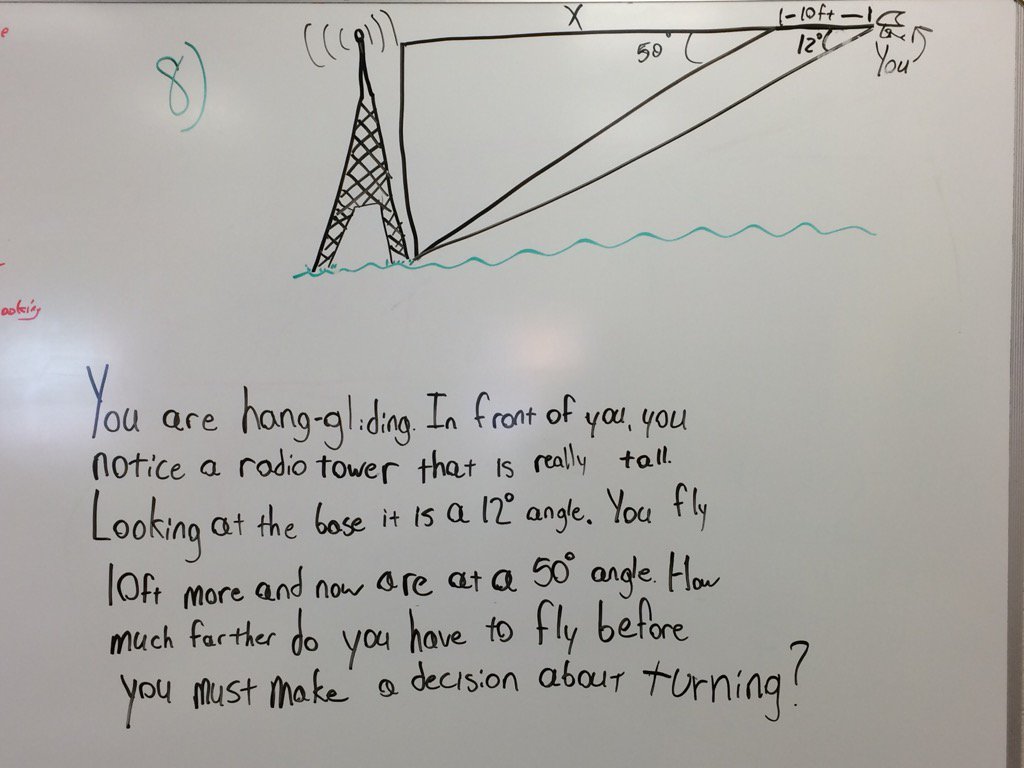 8)
X
|-10ft-|
50°
12°
You
ooking
You are hang-gliding. In front of you, you
notice a radio tower that is really tall.
Looking at the base it is a 12° angle. You fly
10ft more and now are at a 50° angle. How
much farther do you have to fly before
you must make a decision about turning?